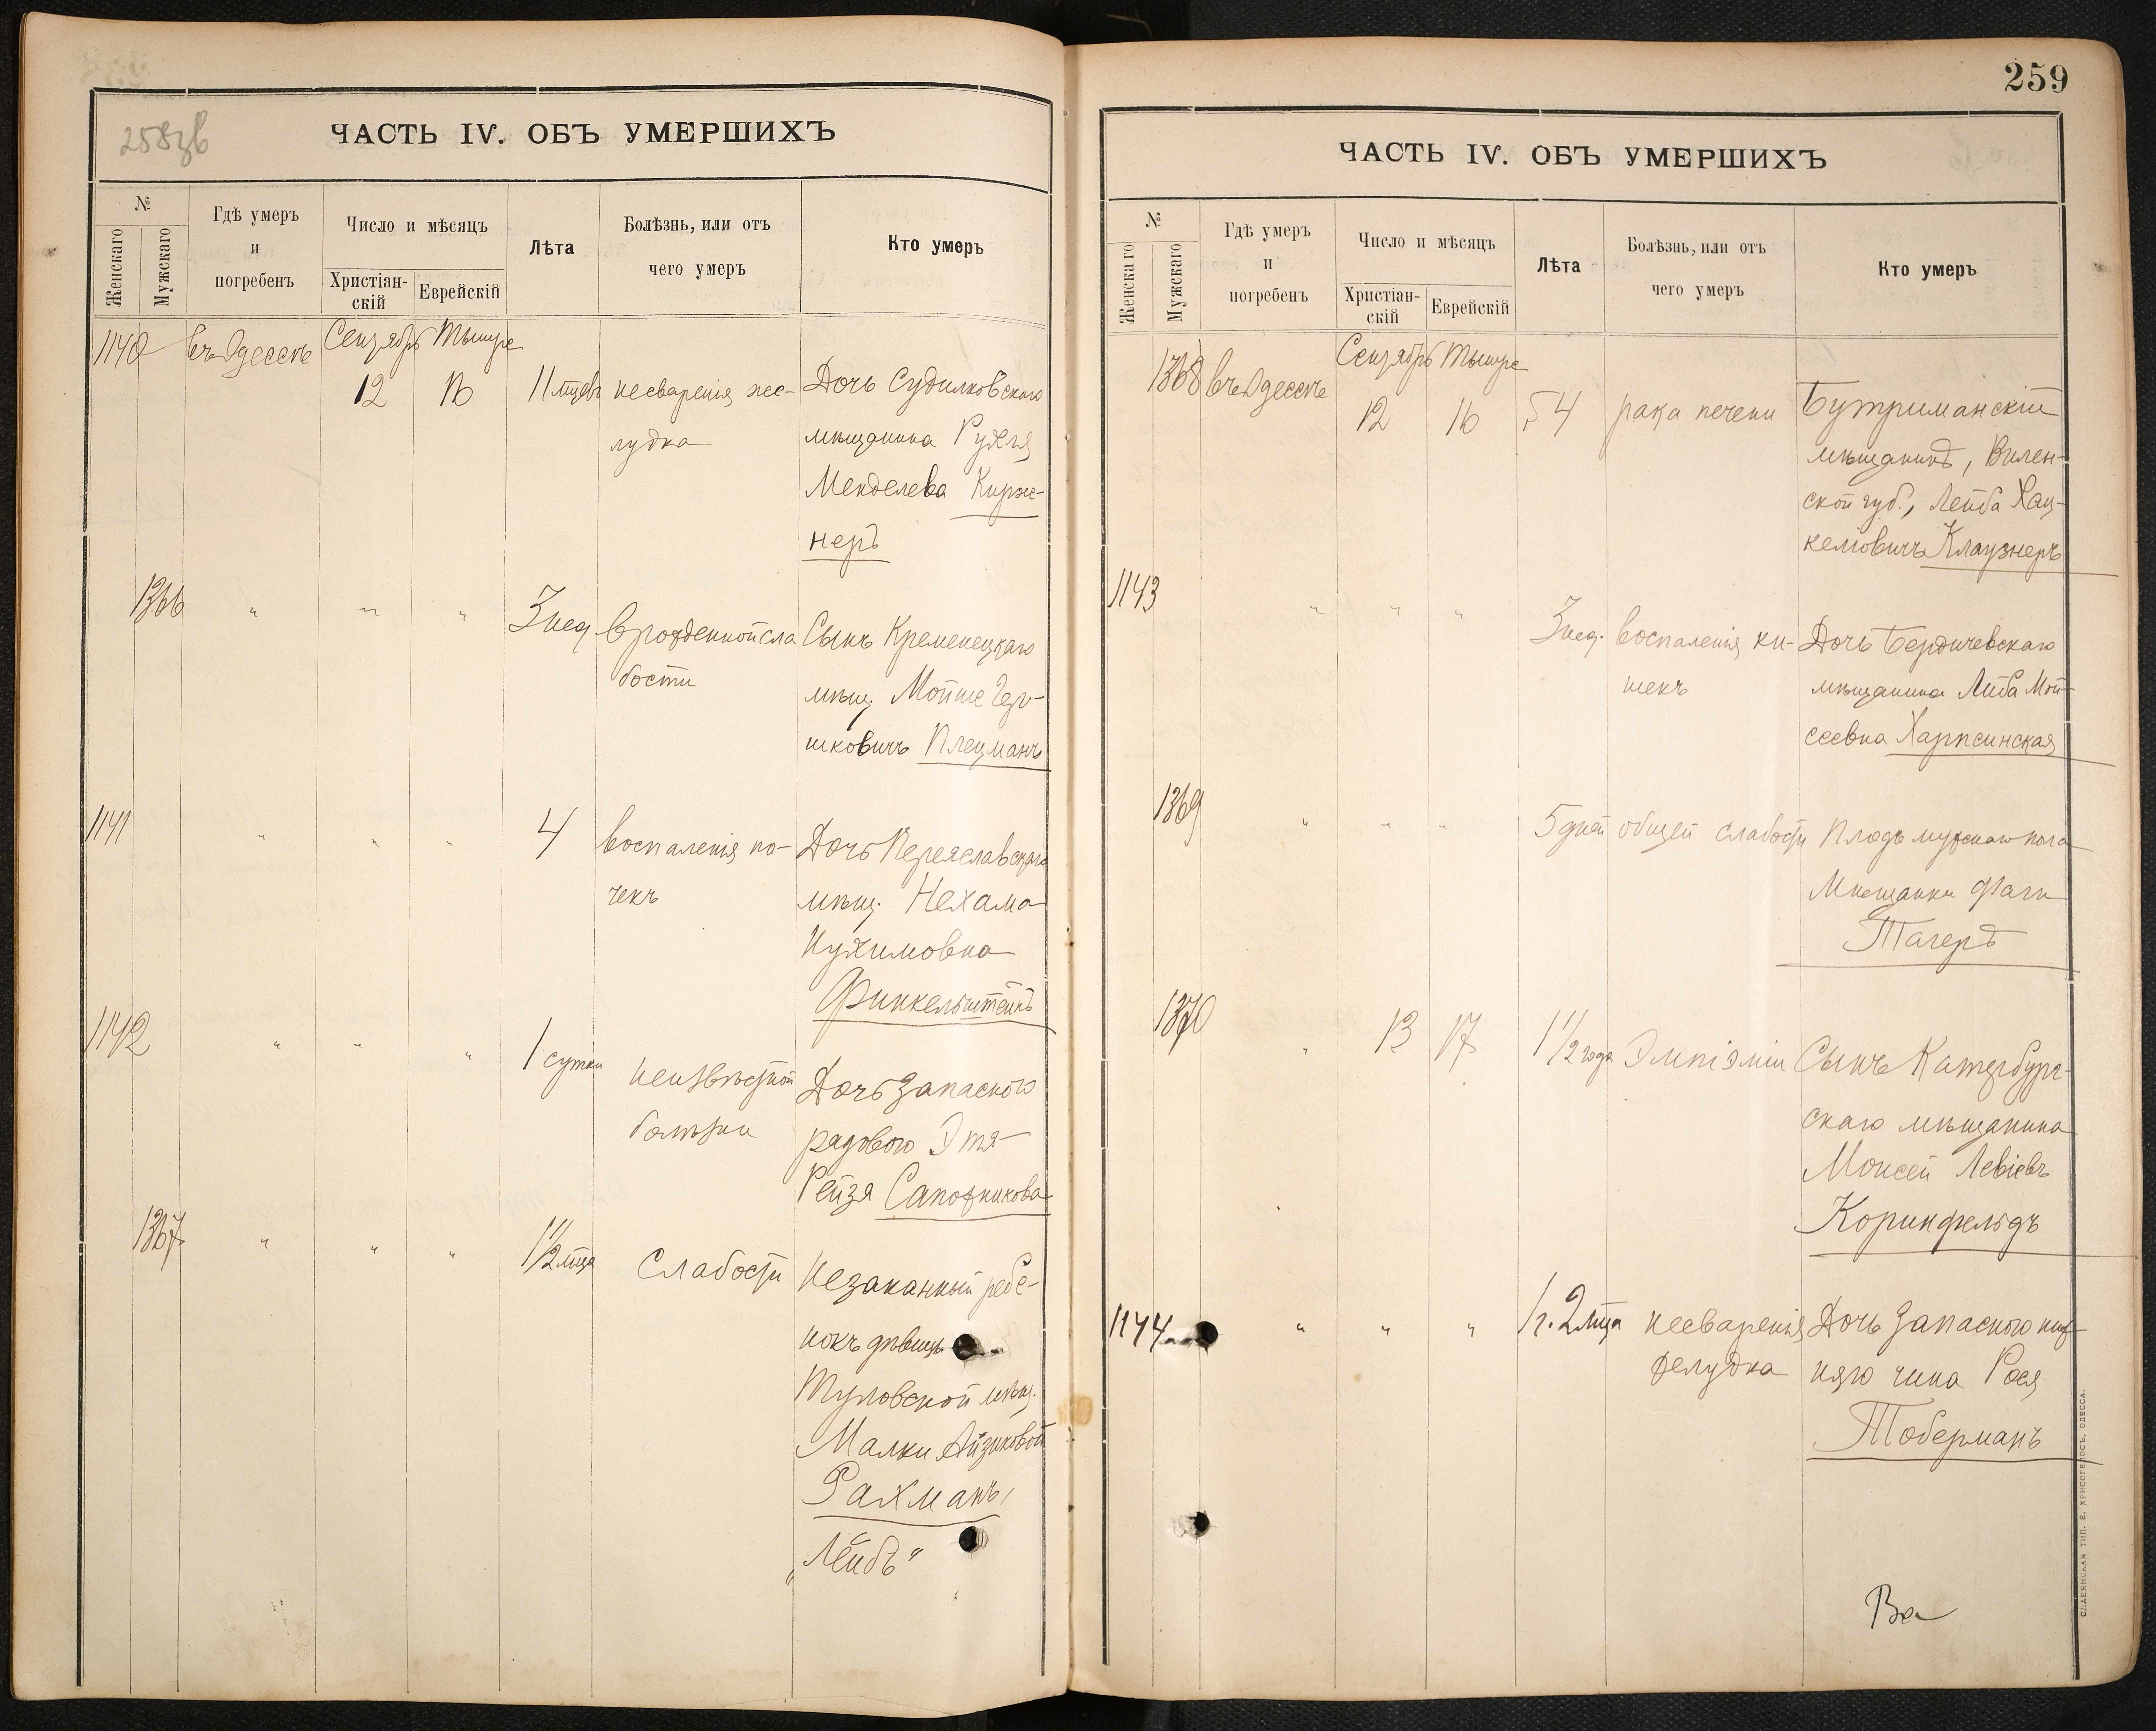 258зв
ЧАСТЬ IV. ОБЪ УМЕРШИХЪ
№
Женскаго
Мужскаго
Гдѣ умеръ
и
погребенъ
Число и мѣсяцъ
Христіан-
скій
Еврейскій
Лѣта
Болѣзнь, или отъ
чего умеръ
Кто умеръ
1140 въ Одессѣ Сентябрь Тышре
12 16 11 мцевъ несваренія же- Дочь Судилковскаго
лудка мѣщанина Рухля
Менделева Кирж-
неръ
1366 " " " 3 нед врожденной сла Сынъ Кременецкаго
бости мѣщ. Мойше Гер-
шковичъ Плецманъ
1141 " " " 4 воспаленія по- Дочь Переяславскаго
чекъ мѣщ. Нехама
Нухимовна
Финкельштейнъ
1142 " " " 1 сутки неизвѣстной Дочь запасного
болѣзни рядового Этя-
Рейзя Сапожникова
1367 " " " 1 1/2 мца Слабости Незаканный ребе-
нокъ дѣвицы
Туловской мѣщ.
Малки Айзиковой
Рахманъ,
"Лейбъ"
259
ЧАСТЬ IV. ОБЪ УМЕРШИХЪ
№
Женскаго
Мужскаго
Гдѣ умеръ
и
погребенъ
Число и мѣсяцъ
Христіан-
скій
Еврейскій
Лѣта
Болѣзнь, или отъ
чего умеръ
Кто умеръ
1368 въ Одессѣ Сентябрь Тышре
12 16 54 рака печени Бутриманскій
мѣщанинъ, Вилен-
ской губ., Лейба Хац-
келіовичъ Клаузнеръ
1143 " " " 3 нед. воспаленія ки- Дочь Бердичевскаго
шекъ мѣщанина Либа Мой-
сеевна Харпсинская
1369 " " " 5 дней общей слабости Плодъ мужскаго пола
Мѣщанки Фаги
Тагеръ
1370 " 13 17 1 1/2 года Эмпіэміи Сынъ Катербург-
скаго мѣщанина
Моисей Левіевъ
Коринфельдъ
1144 " " " 1 г. 2 мца несваренія Дочь запасного ниж-
желудка няго чина Рося
Тоберманъ
Ва
СЛАВЯНСКАЯ ТИП. Е. ХРИСОГЕЛОСЪ, ОДЕССА.